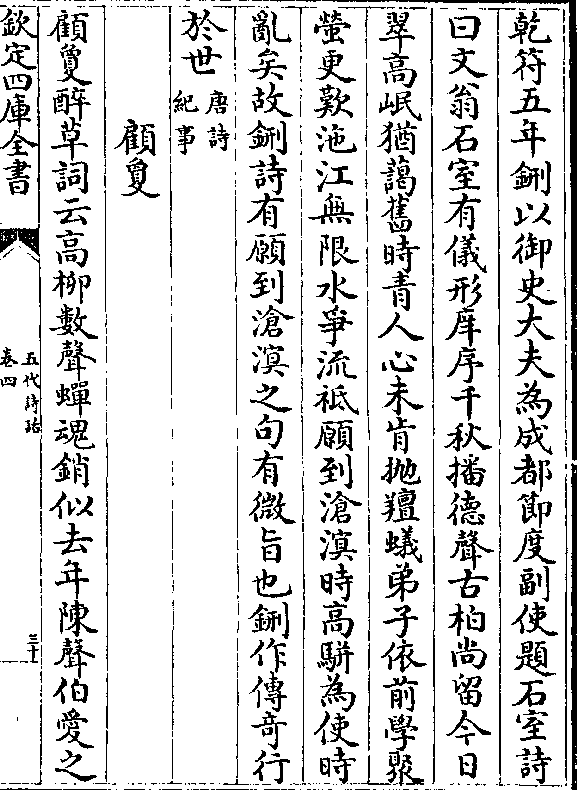 乾符五年鉶以御史大夫為成都節度副使題石室詩
曰文翁石室有儀形庠序千秋播德聲古柏尚留今日
翠高岷猶藹舊時青人心未肯抛羶蟻弟子依前學聚
螢更歎沲江無限水爭流祗願到滄溟時高駢為使時
亂矣故鉶詩有願到滄溟之句有微旨也鉶作傳竒行
於世
唐詩
紀事
顧敻
顧敻醉草詞云高栁數聲蟬魂銷似去年陳聲伯愛之
欽定四庫全書
五代詩話
卷四
三十